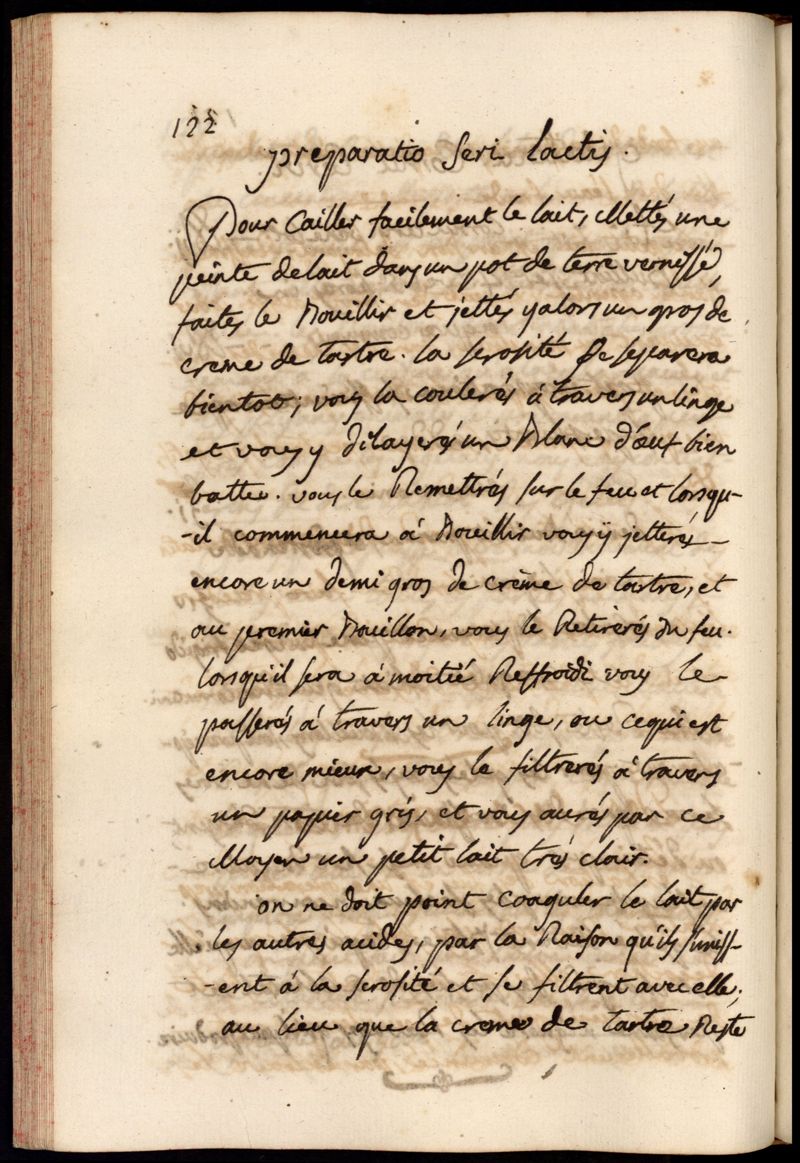 122
preparatio Seri lactis.
Pour Cailler facilement le lait, Mettés une
peinte de lait dans un pot de terre vernissé,
faites le Bouillir et jettés y alors un gros de
creme de tartre. la serosité Se separera
bientot; vous la coulerés á travers un linge
et vous y dilayerés un Blanc d'œuf bien
battu. vous le Remettrés sur le feu et lorsqu-
-il commencera á Bouillir vous ÿ jetterés
encore un demi gros de crème de tartre, et
au premier Bouillon, vous le Retirerés du feu.
lorsqu'il sera á moitié Reffroidi vous le
passerés á travers un linge, ou ce qui est
encore mieux, vous le filtrerés á travers
un papier gris, et vous aurés par ce
Moyen un petit lait trés clair.
on ne doit point coaguler le lait par
les autres acides, par la Raison qu'ils s'uniss-
-ent á la serosité et se filtrent avec elle,
au lieu que la creme de tartre Reste